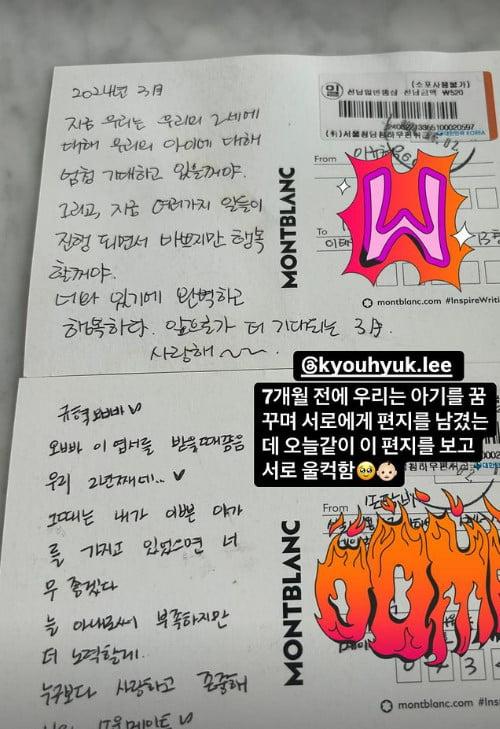 2024년 3月
지금 우리는 우리의 2세에
대해 우리의 아이에 대해
엄청 기대하고 있을꺼야.
그리고, 지금 여러가지 일들이
진행 되면서 바쁘지만 행복
할꺼야.
너와 있기에 완벽하고
행복하다. 앞으로가 더 기대되는 3月.
사랑해~~.
MONTBLANC
(소포사용불가)
선납일반통상 선납금액 ₩520
대한민국 KOREA
From
W
To
montblanc.com #InspireWriti
@kyouhyuk.lee
7개월 전에 우리는 아기를 꿈
꾸며 서로에게 편지를 남겼는
데 오늘같이 이 편지를 보고
서로 울컥함🥹👶🏻
규혁오빠
오빠 이 엽서를 받을때쯤음
우리 2년째데..
그때는 내가 이쁜 아가
를 가지고 있었으면 너
무 좋겠다
늘 아내로써 부족하지만
더 노력할게.
누구보다 사랑하고 존중해
MONTBLANC
From
OOM
montblanc.com #Ins